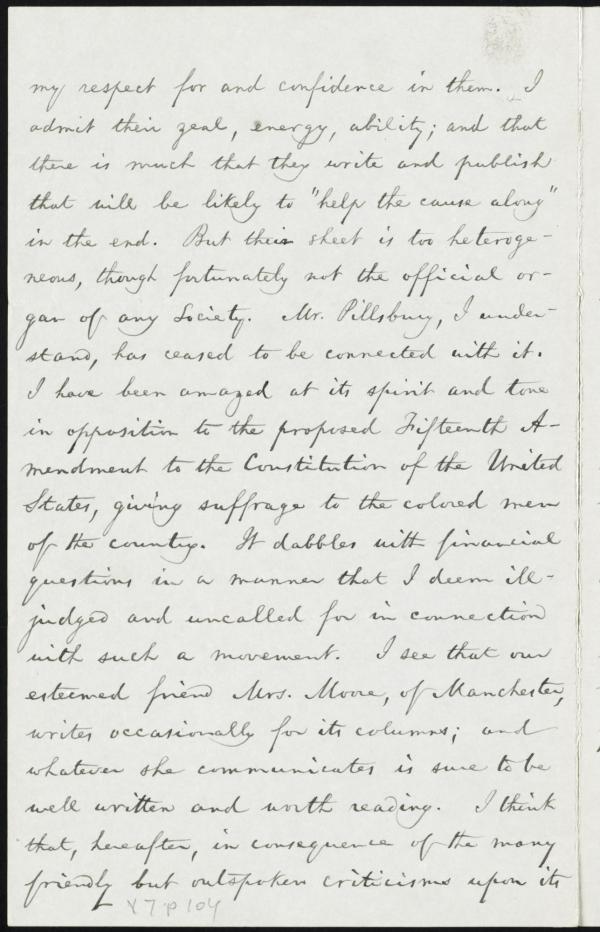 my respect for and confidence in them. I
admit their zeal, energy, ability; and that
there is much that they write and publish
that will be likely to "help the cause along"
in the end. But their sheet is too heteroge-
neous, though fortunately not the official or-
gan of any Society. Mr. Pillsbury, I under-
stand, has ceased to be connected with it.
I have been amazed at its spirit and tone
in opposition to the proposed Fifteenth A-
mendment to the Constitution of the United
States, giving suffrage to the colored men
of the country. It dabbles with financial
questions in a manner that I deem ill-
judged and uncalled for in connection
with such a movement. I see that our
esteemed friend Mrs. Moore, of Manchester,
writes occasionally for its columns; and
whatever she communicates is sure to be
well written and worth reading. I think
that, hereafter, in consequence of the many
friendly but outspoken criticisms upon its
v 7 p 104